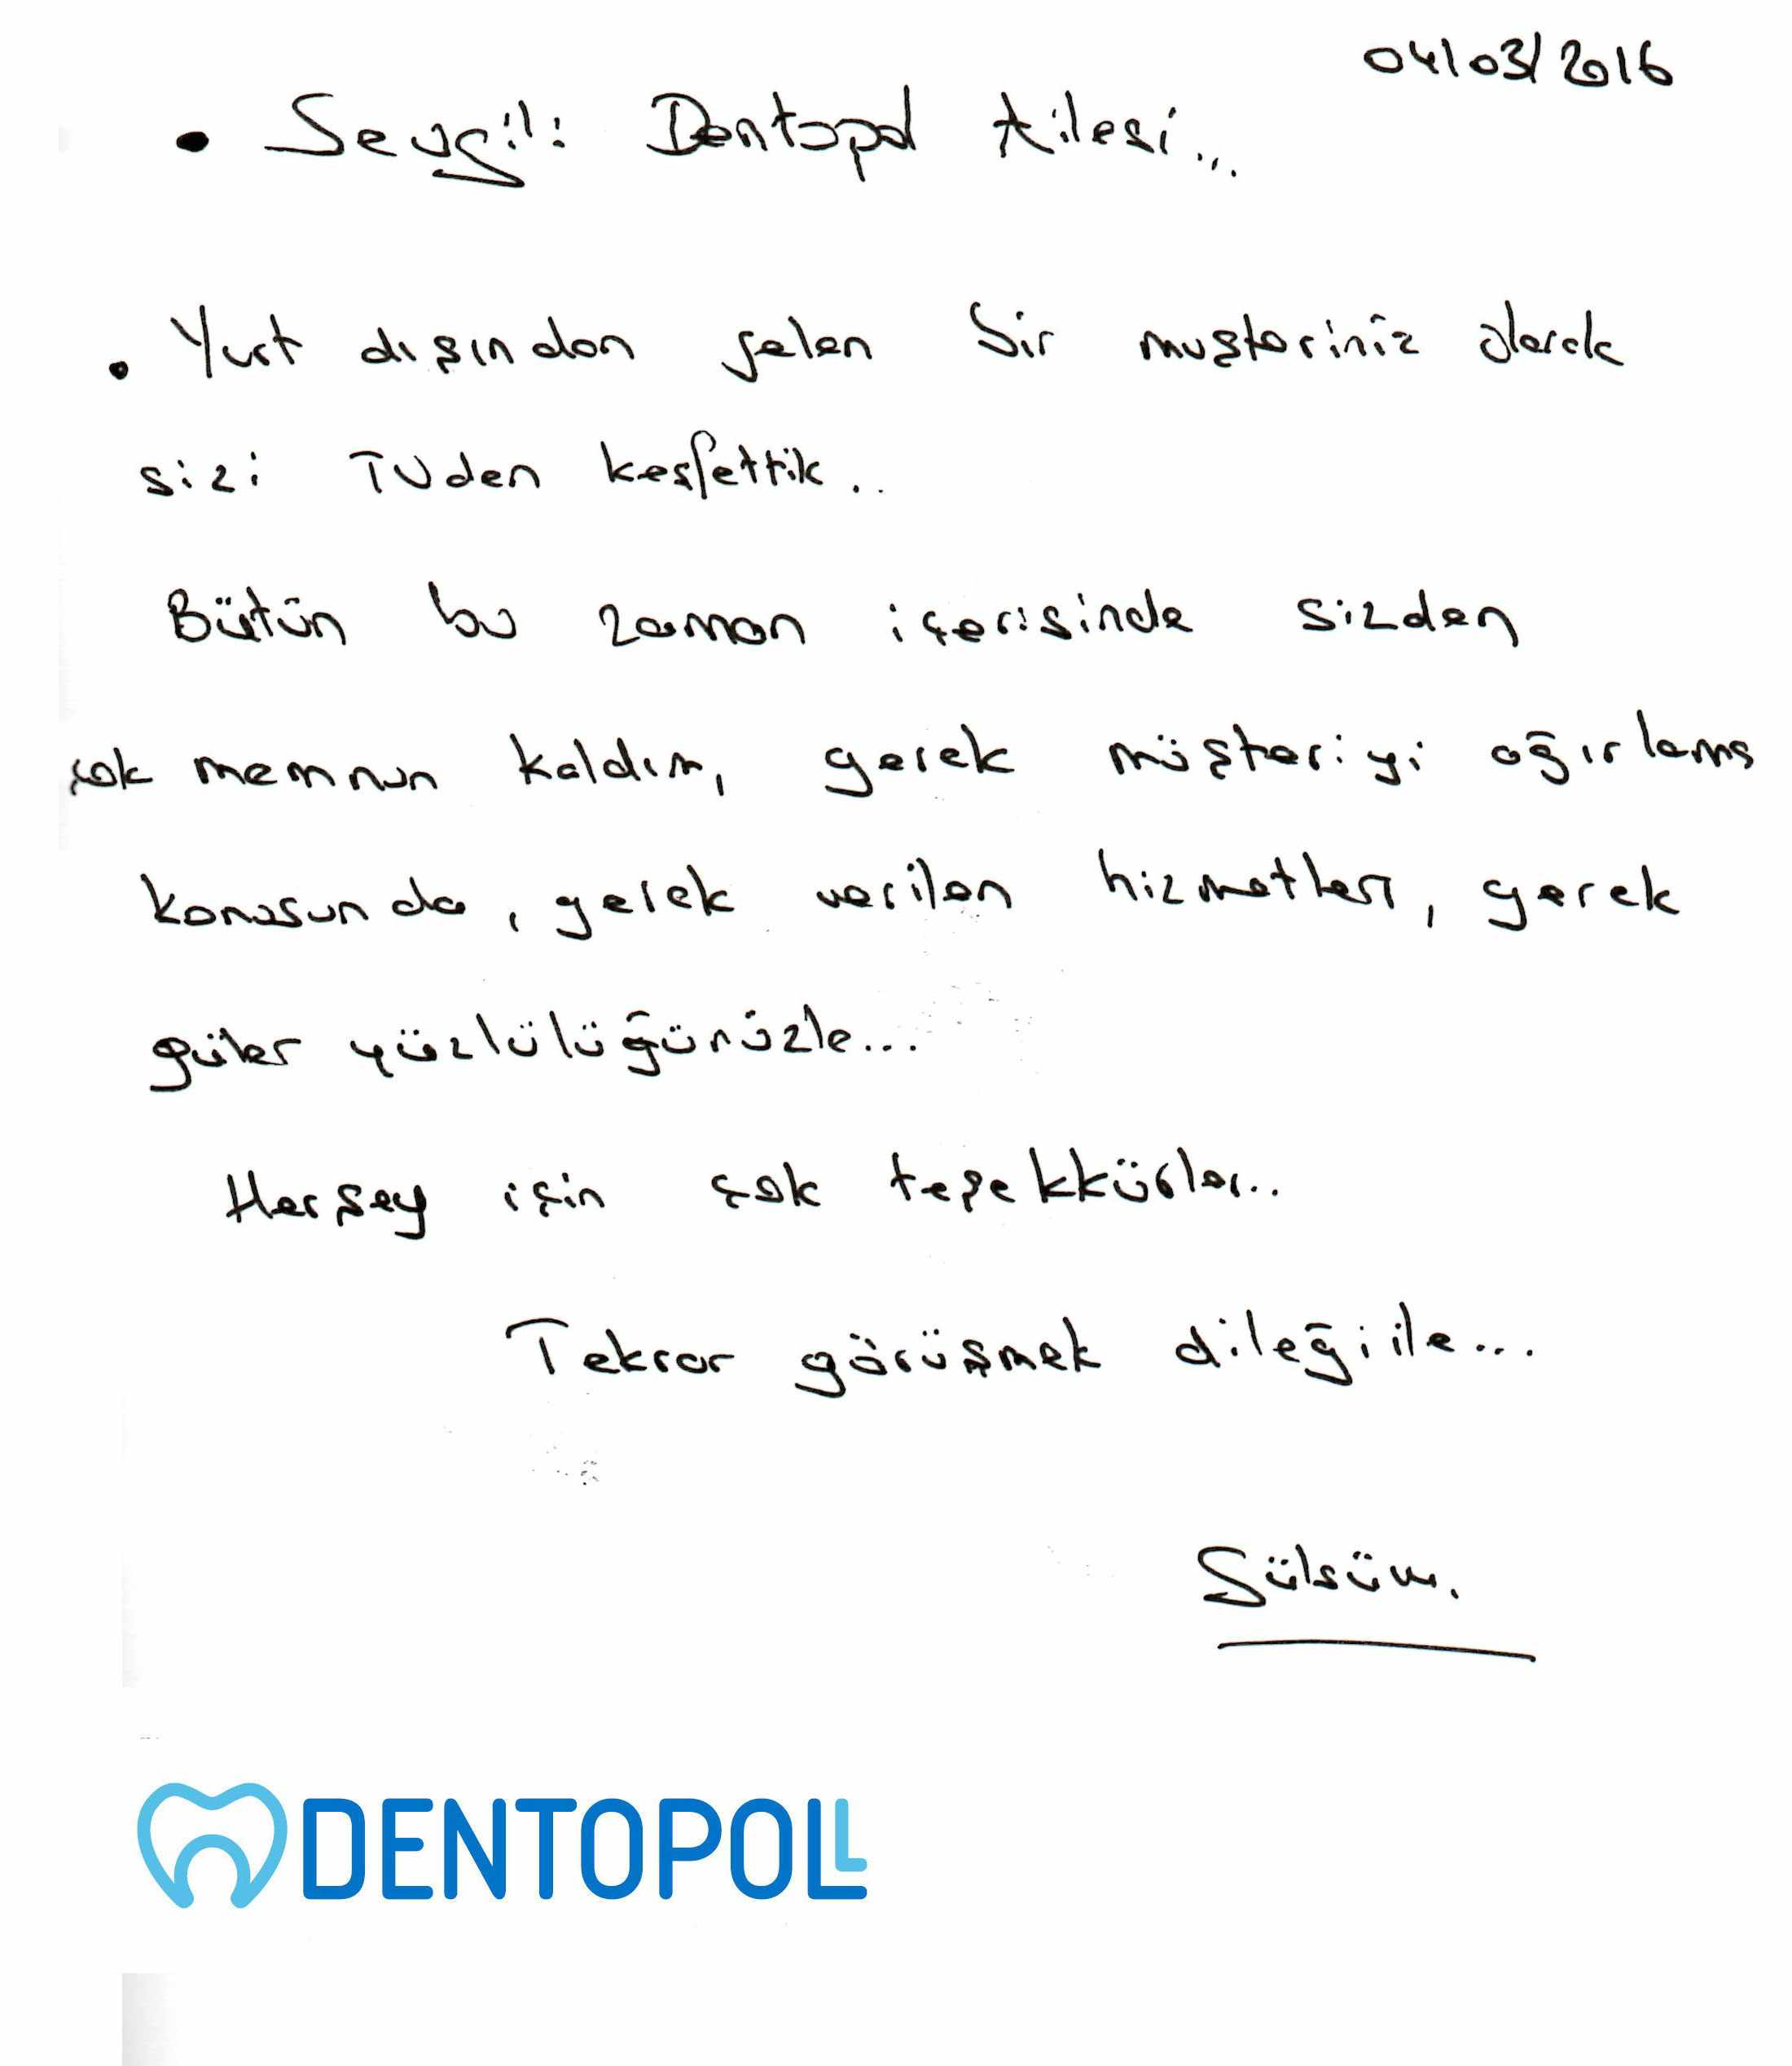 04/03/2016
• Sevgili Dentopol Ailesi...
• Yurt dışından gelen bir muşteriniz olarak
sizi TVden keşfettik..
Bütün bu zaman içerisinde sizden
çok memnun kaldım, gerek müşteriyi ağırlama
konusunda, gerek verilen hizmetleri, gerek
güler yüzlülüğünüzle...
Herşey için çok teşekkürler..
Tekrar görüşmek dileği ile...
Gülsüm.
DENTOPOLL